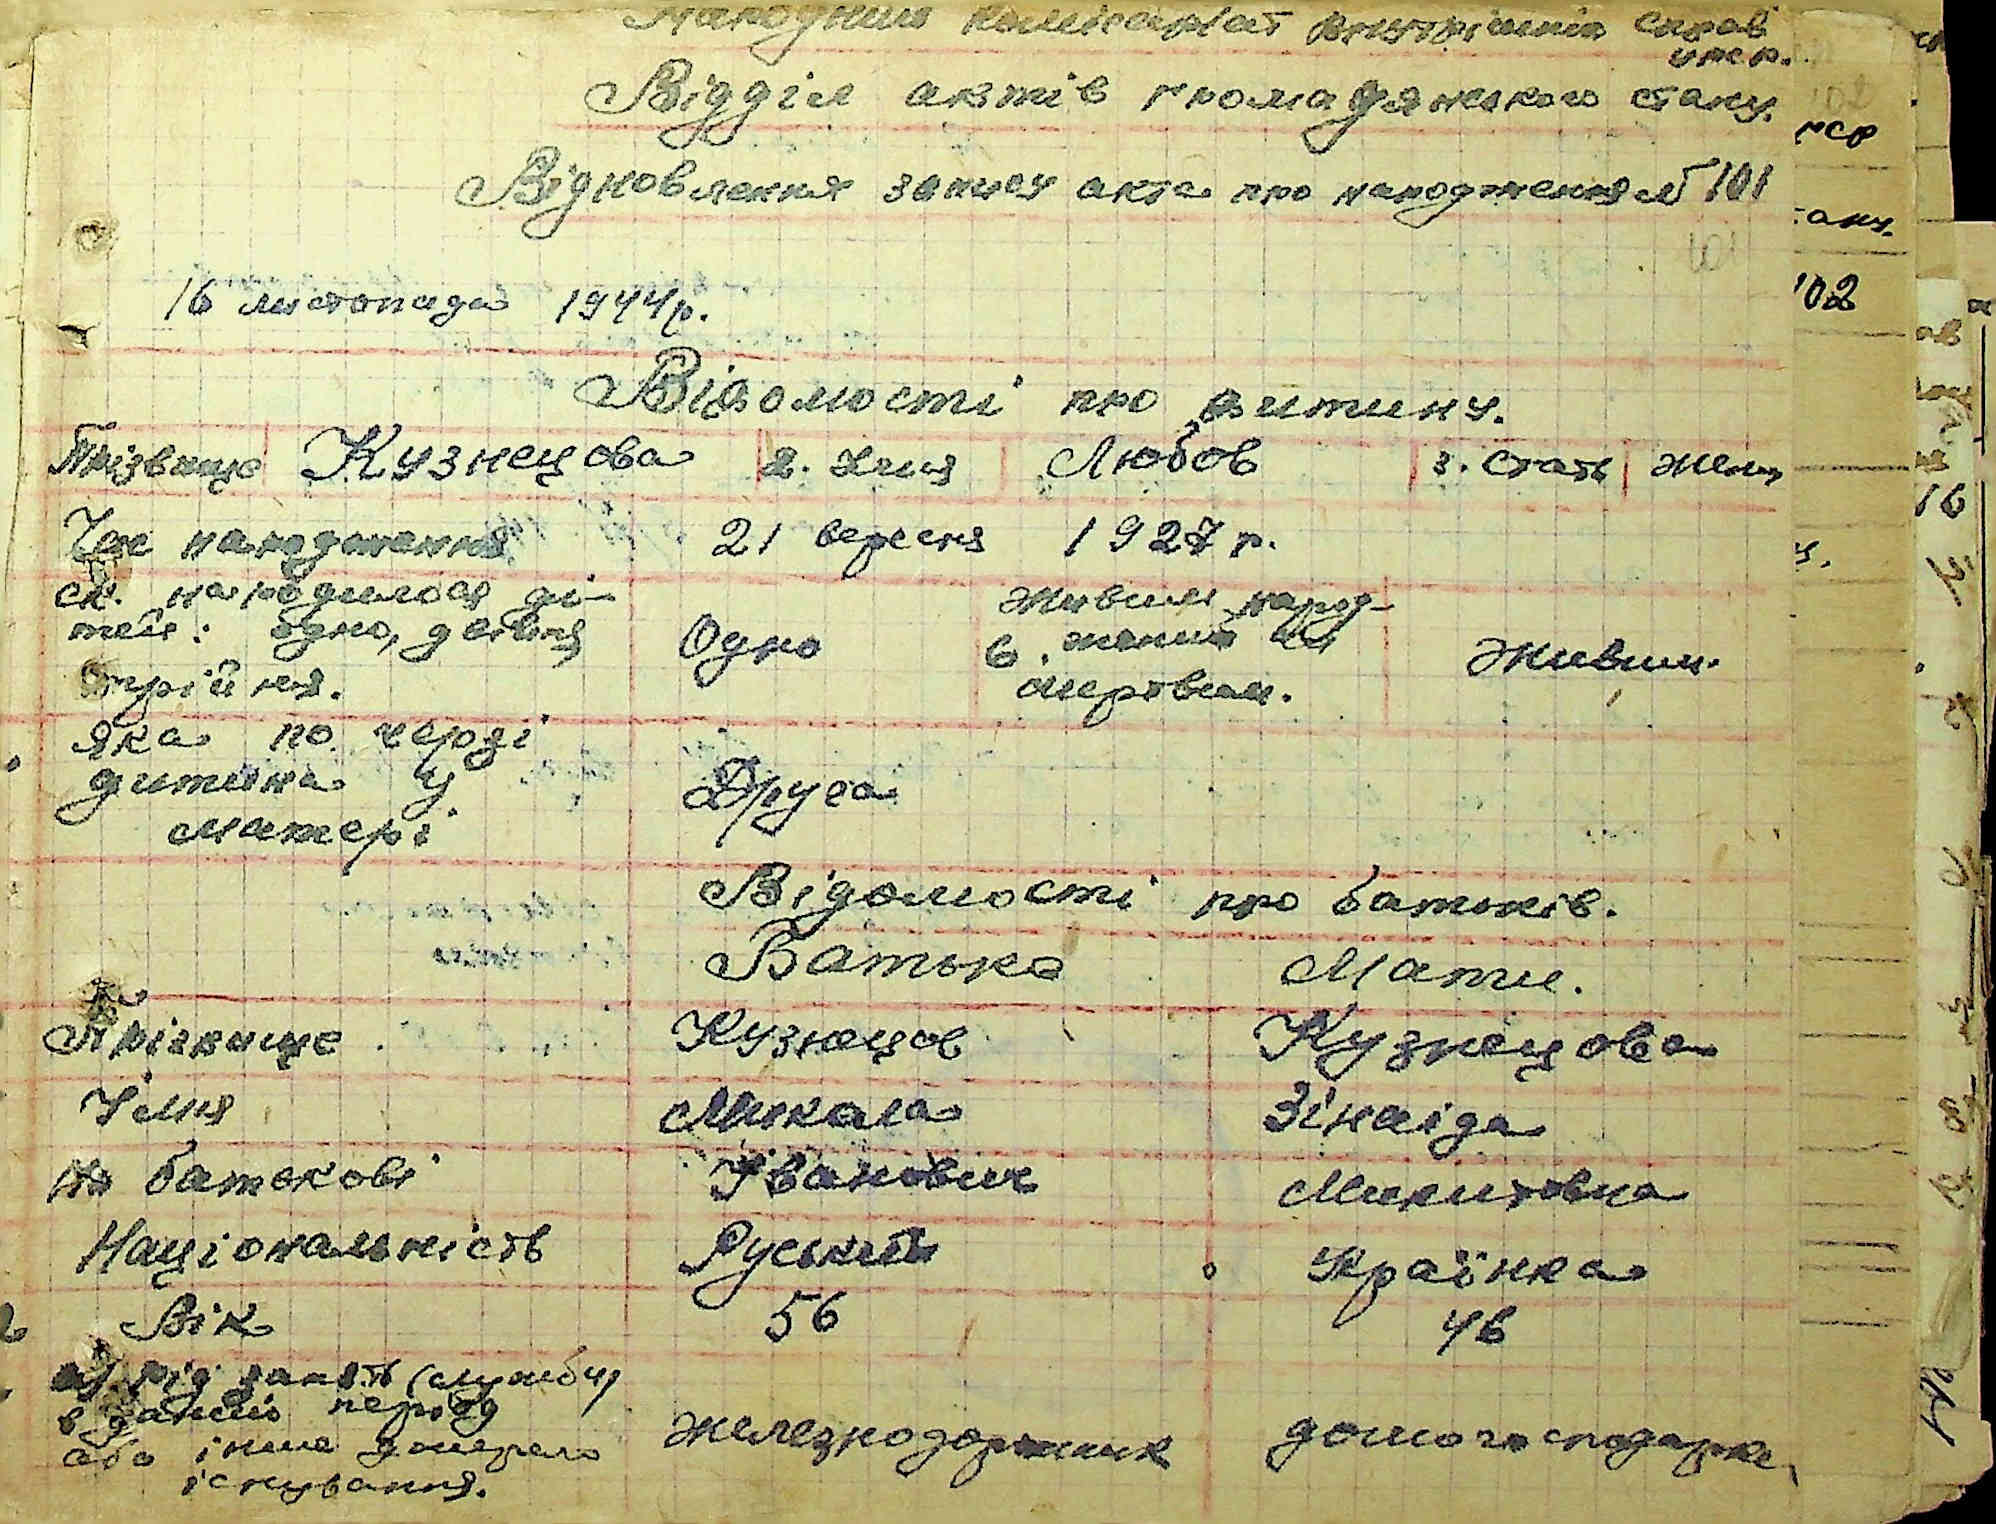 Народний комісаріат внутрішніх справ
УРСР.
Відділ актів громадянського стану.
Відновлення запису акта про народження № 101
101
16 листопада 1944 р.
Відомості про дитину.
Прізвище Кузнецова 2. Імя Любов 3. Стать жен.
Час народження 21 вересня 1927 р.
ск. народилося ді-
тей: одно, двійня
трійня.
Одно
6. Живим народ-
жений чи
мертвим.
Живим.
Яка по черзі
дитина у
матері
Друга
Відомості про батьків.
Батько Мати.
Прізвище Кузнецов Кузнецова
Імя Микола Зінаіда
По батькові Іванович Микитовна
Національність Руський Українка
Вік 56 46
а) рід занять (служби)
в даний період
або інше джерело
існування.
железнодорожник домогосподарка
102